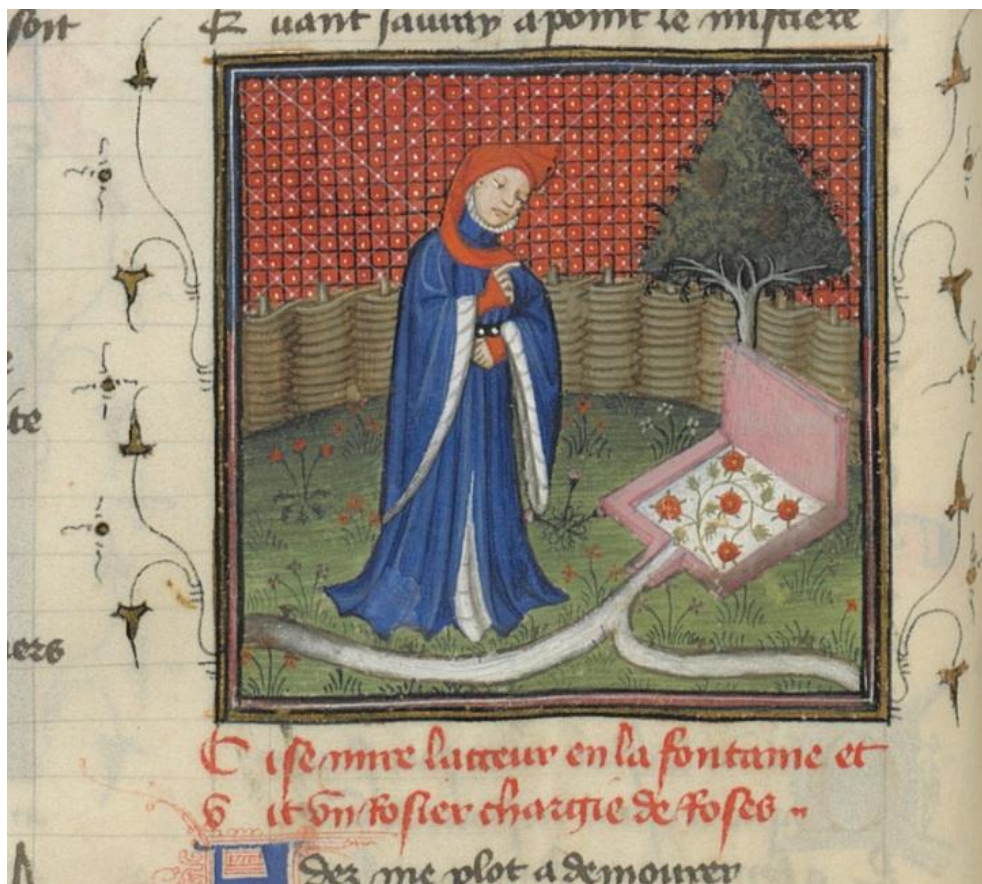 soit
Quant jauray apoint le mistiere
te
ers
Ci se mire lacteur en la fontaine et
vit vn Rosier chargie de Roses
Adez me plot a demourer